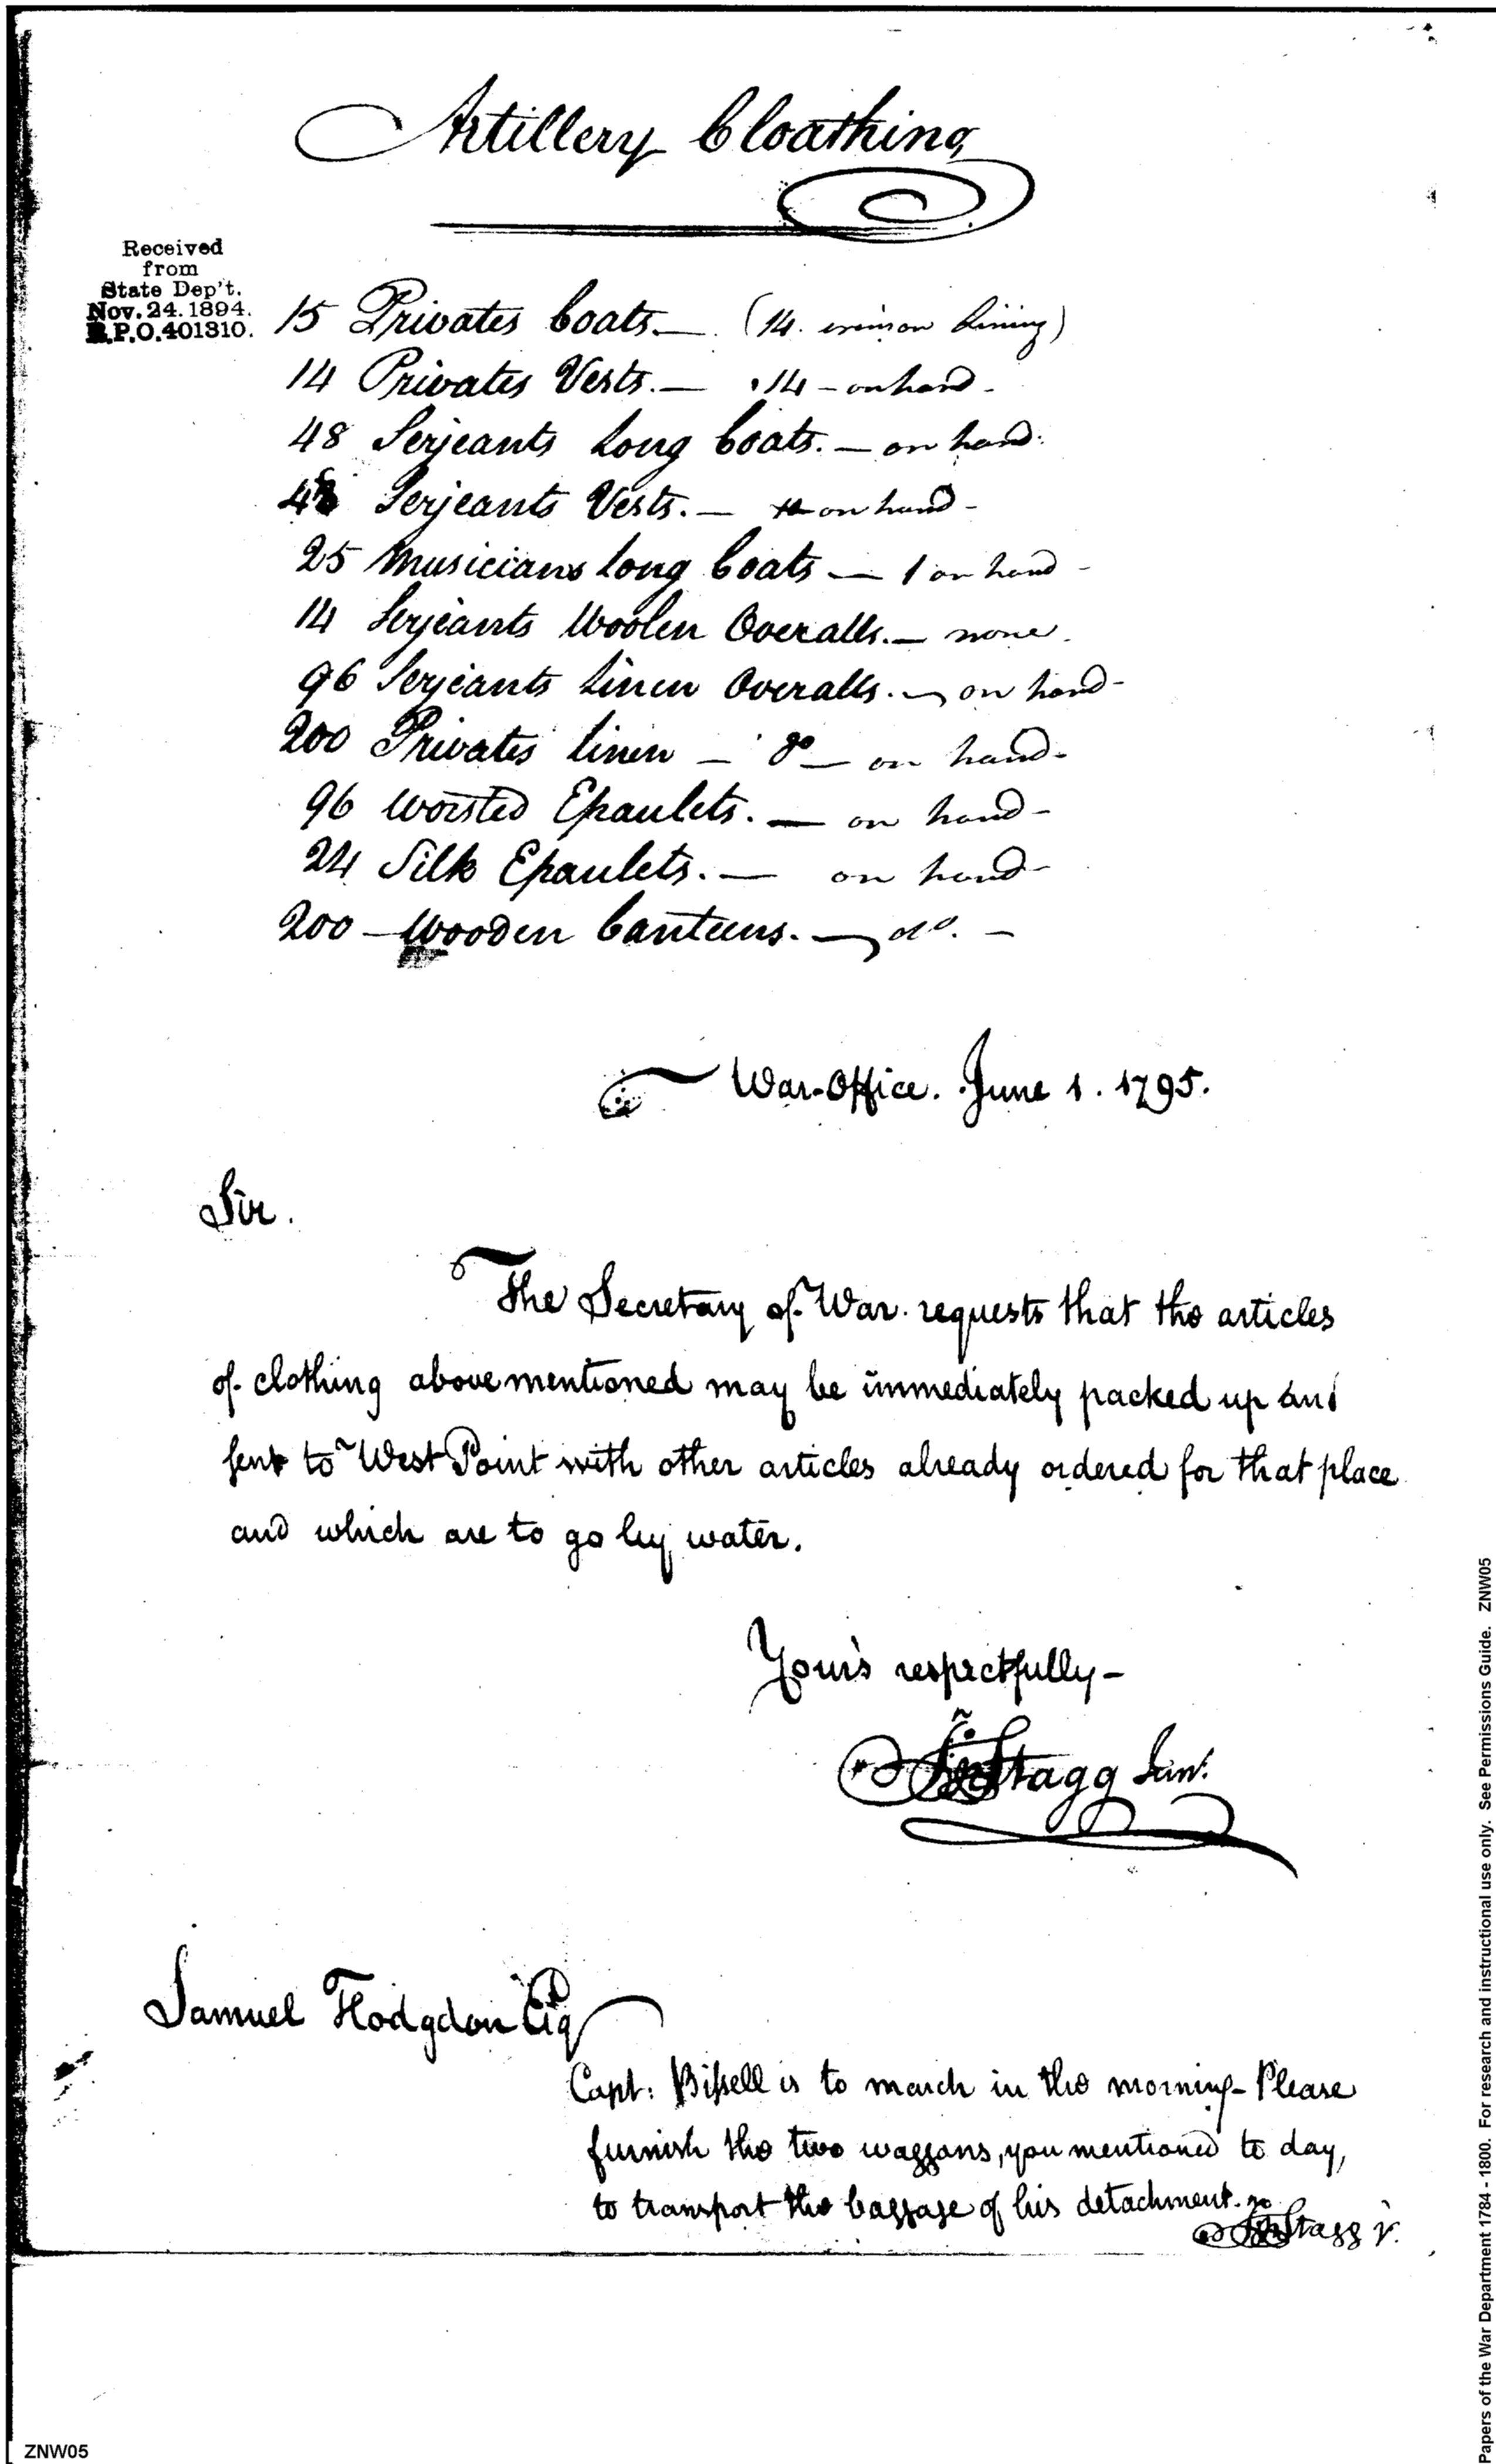 Artillery Cloathing
Received
from
State Dep't.
Nov. 24. 1894.
R.P.O. 401310.
15 Privates Coats. — (14 crimson lining)
14 Privates Vests. — 14 — on hand -
48 Serjeants Long Coats. — on hand.
48 Serjeants Vests. — on hand -
25 Musicians Long Coats — 1 on hand -
14 Serjeants Woolen Overalls. — none.
96 Serjeants Linen Overalls. — on hand -
200 Privates linen — do — on hand -
96 Worsted Epaulets. — on hand -
24 Silk Epaulets. — on hand -
200 — Wooden Canteens. — do. —
War-Office. June 1. 1795.
Sir.
The Secretary of War requests that the articles
of clothing abovementioned may be immediately packed up and
sent to West Point with other articles already ordered for that place
and which are to go by water.
Your's respectfully -
Jno Stagg Junr.
Samuel Hodgdon Esq
Capt: Bissell is to march in the morning - Please
furnish the two waggons, you mentioned to day,
to transport the baggage of his detachment.
Jno Stagg Jr.
Papers of the War Department 1784 - 1800. For research and instructional use only. See Permissions Guide. ZNW05
ZNW05